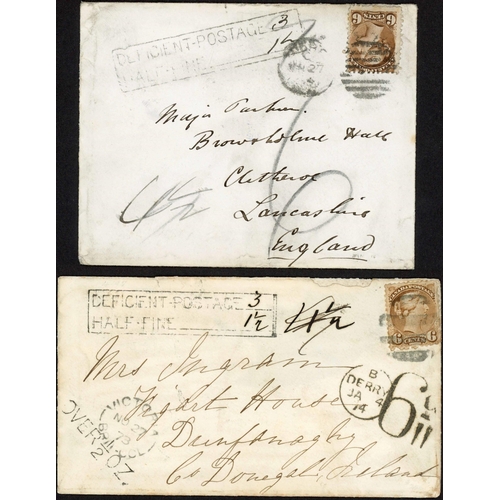 DEFICIENT-POSTAGE 3
HALF-FINE 1½
6
CENTS
6
27
Major Parker
Browsholme Hall
Clitheroe
Lancashire
England
4½
6
DEFICIENT-POSTAGE 3
HALF-FINE 1½
4½
6 CENTS 6
Mrs Ingram
House
Dunfanaghy
Co Donegal, Ireland
B
DERRY
JA 4
74
6
VICTORIA
NO 27
73
OVER ½ OZ.